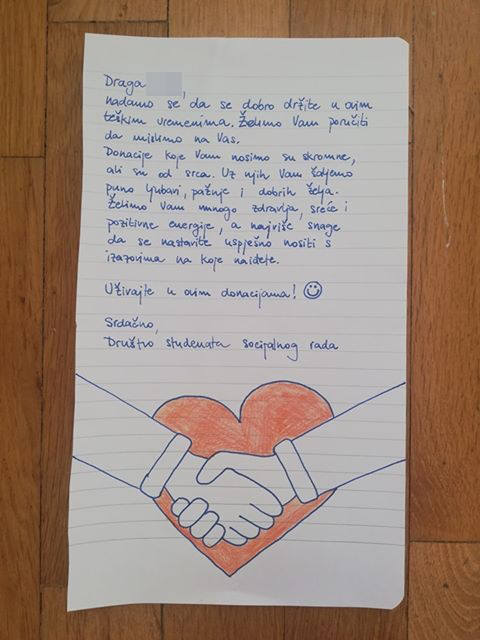 Draga ,
nadamo se da se dobro držite u ovim
teškim vremenima. Želimo Vam poručiti
da mislimo na Vas.
Donacije koje Vam nosimo su skromne,
ali su od srca. Uz njih Vam šaljemo
puno ljubavi, pažnje i dobrih želja.
Želimo Vam mnogo zdravlja, sreće i
pozitivne energije, a najviše snage
da se nastavite uspješno nositi s
izazovima na koje naiđete.
Uživajte u ovim donacijama! ☺
Srdačno,
Društvo studenata socijalnog rada